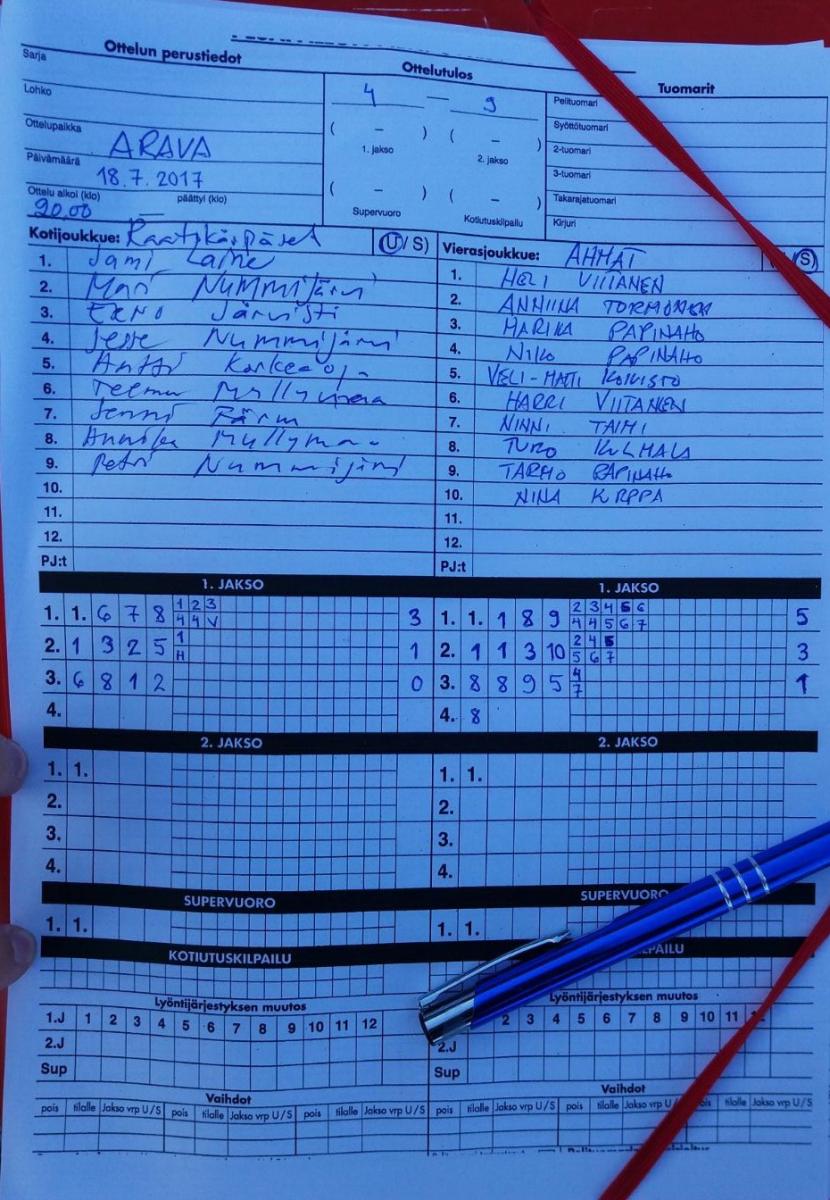 Ottelun perustiedot
Ottelutulos
Tuomarit
Sarja
Lohko
Ottelupaikka ARAVA
Päivämäärä 18.7.2017
Ottelu alkoi (klo) 20.00 päättyi (klo)
4 — 9
( – ) ( – )
1. jakso 2. jakso
( – ) ( – )
Supervuoro Kotiutuskilpailu
Pelituomari
Syöttötuomari
2-tuomari
3-tuomari
Takarajatuomari
Kirjuri
Kotijoukkue: (U/S)
1. Jami Laine
2. Mari Nummijärvi
3. Eero
4. Jesse Nummijärvi
5. Antti Korkeaoja
6. Teemu Myllymaa
7. Jenni Färm
8. Annika Myllymaa
9. Petri Nummijärvi
10.
11.
12.
PJ:t
Vierasjoukkue: AHMAT S)
1. HELI VIITANEN
2. ANNIINA TORMONEN
3. MARIKA PAPINAHO
4. NIKO PAPINAHO
5. VELI-MATTI KOIVISTO
6. HARRI VIITANEN
7. NINNI TAIMI
8. TURO KULMALA
9. TARMO PAPINAHO
10. NINA KORPPA
11.
12.
PJ:t
1. JAKSO
1. 1. 6 7 8 1 2 3 3
4 4 V
2. 1 3 2 5 1 1
H
3. 6 8 1 2 0
4.
1. JAKSO
1. 1. 1 8 9 2 3 4 5 6 5
4 4 5 6 7
2. 1 1 3 10 2 4 5 3
5 6 7
3. 8 8 9 5 4 1
7
4. 8
2. JAKSO
1. 1.
2.
3.
4.
2. JAKSO
1. 1.
2.
3.
4.
SUPERVUORO
1. 1.
SUPERVUORO
1. 1.
KOTIUTUSKILPAILU
Lyöntijärjestyksen muutos
1.J 1 2 3 4 5 6 7 8 9 10 11 12
2.J
Sup
Lyöntijärjestyksen muutos
2 3 4 5 6 7 8 9 10 11
2.J
Sup
Vaihdot
pois tilalle Jakso vrp U/S pois tilalle Jakso vrp U/S pois tilalle Jakso vrp U/S
Vaihdot
pois tilalle Jakso vrp U/S pois tilalle Jakso vrp U/ pois tilalle Jakso vrp U/S